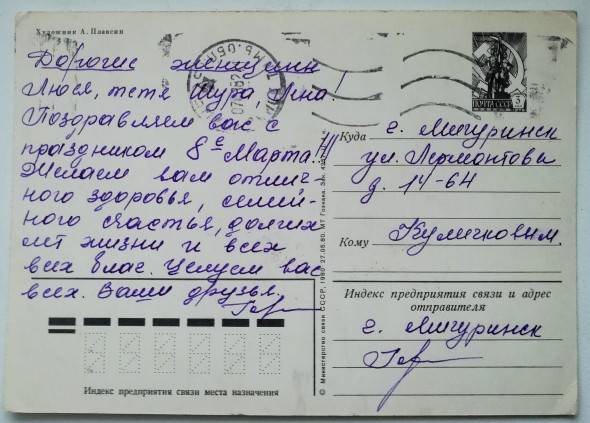 Художник А. Плаксин
Дорогие женщины
Люся, тетя Шура, Яна!
Поздравляем вас с
праздником 8е Марта!!!
Желаем вам отлич-
ного здоровья, семей-
ного счастья, долгих
лет жизни и всех
всех благ. Целуем вас
всех. Ваши друзья.
ПОЧТА СССР
Куда г. Мичуринск
ул. Лермонтова
д. 14-64
Кому Куличковым.
Индекс предприятия связи и адрес
отправителя
г. Мичуринск
Индекс предприятия связи места назначения
© Министерство связи СССР, 1980. 27.05.80. МТ Гознака.